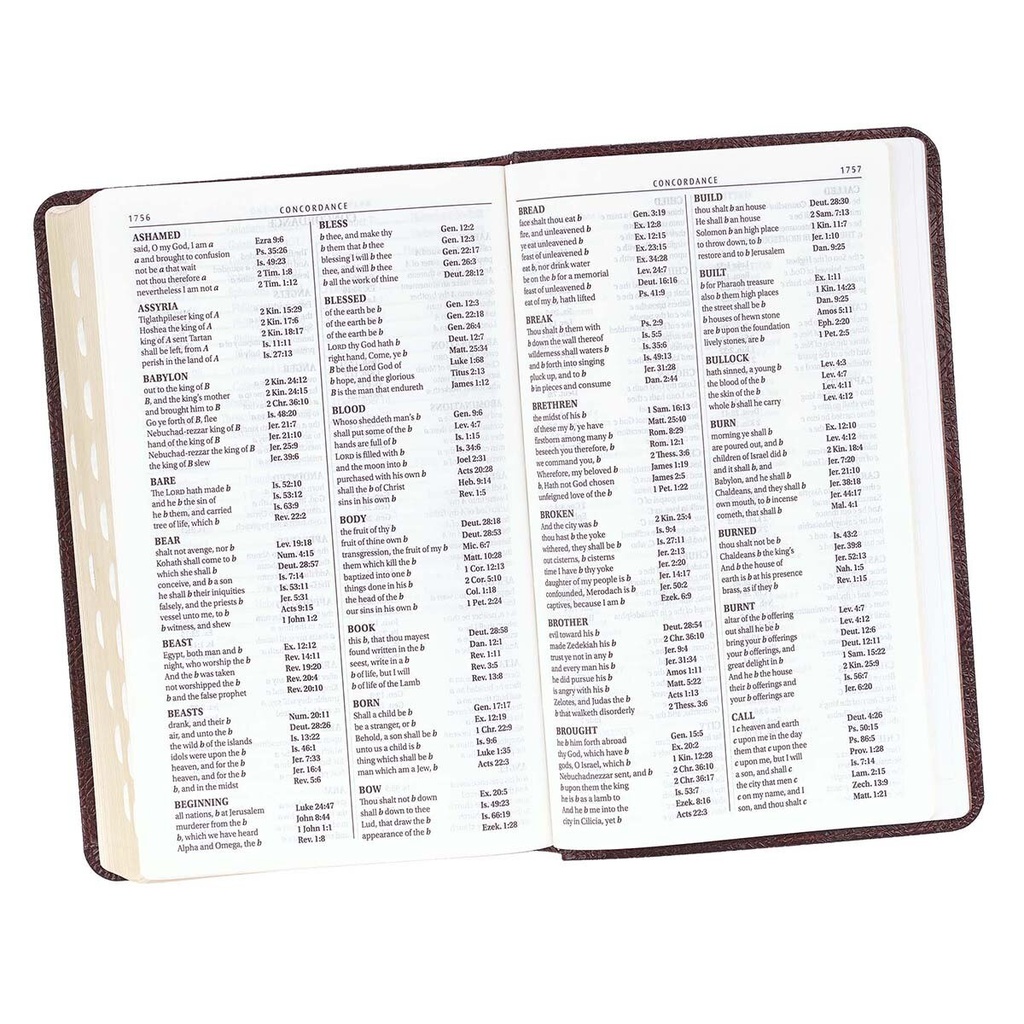 1756
CONCORDANCE
ASHAMED
said, O my God, I am a Ezra 9:6
a and brought to confusion Ps. 35:26
not be a that wait Is. 49:23
not thou therefore a 2 Tim. 1:8
nevertheless I am not a 2 Tim. 1:12
ASSYRIA
Tiglathpileser king of A 2 Kin. 15:29
Hoshea the king of A 2 Kin. 17:6
king of A sent Tartan 2 Kin. 18:17
shall be left, from A Is. 11:11
perish in the land of A Is. 27:13
BABYLON
out to the king of B 2 Kin. 24:12
of B, and the king's mother 2 Kin. 24:15
and brought him to B 2 Chr. 36:10
Go ye forth of B, flee Is. 48:20
Nebuchad-rezzar king of B Jer. 21:7
hand of the king of B Jer. 21:10
Nebuchad-rezzar the king of B Jer. 25:9
the king of B slew Jer. 39:6
BARE
The LORD hath made b Is. 52:10
and he b the sin of Is. 53:12
he b them, and carried Is. 63:9
tree of life, which b Rev. 22:2
BEAR
shalt not avenge, nor b Lev. 19:18
Kohath shall come to b Num. 4:15
which she shall b Deut. 28:57
conceive, and b a son Is. 7:14
he shall b their iniquities Is. 53:11
falsely, and the priests b Jer. 5:31
vessel unto me, to b Acts 9:15
b witness, and shew 1 John 1:2
BEAST
Egypt, both man and b Ex. 12:12
night, who worship the b Rev. 14:11
And the b was taken Rev. 19:20
not worshipped the b Rev. 20:4
b and the false prophet Rev. 20:10
BEASTS
drank, and their b Num. 20:11
air, and unto the b Deut. 28:26
the wild b of the islands Is. 13:22
idols were upon the b Is. 46:1
heaven, and for the b Jer. 7:33
heaven, and for the b Jer. 16:4
b, and in the midst Rev. 5:6
BEGINNING
all nations, b at Jerusalem Luke 24:47
murderer from the b John 8:44
b, which we have heard 1 John 1:1
Alpha and Omega, the b Rev. 1:8
BLESS
b thee, and make thy Gen. 12:2
b them that b thee Gen. 12:3
blessing I will b thee Gen. 22:17
thee, and will b thee Gen. 26:3
b all the work of thine Deut. 28:12
BLESSED
of the earth be b Gen. 12:3
of the earth be b Gen. 22:18
of the earth be b Gen. 26:4
LORD thy God hath b Deut. 12:7
right hand, Come, ye b Matt. 25:34
B be the Lord God of Luke 1:68
b hope, and the glorious Titus 2:13
B is the man that endureth James 1:12
BLOOD
Whoso sheddeth man's b Gen. 9:6
shall put some of the b Lev. 4:7
hands are full of b Is. 1:15
LORD is filled with b Is. 34:6
and the moon into b Joel 2:31
purchased with his own b Acts 20:28
shall the b of Christ Heb. 9:14
sins in his own b Rev. 1:5
BODY
the fruit of thy b Deut. 28:18
fruit of thine own b Deut. 28:53
transgression, the fruit of my b Mic. 6:7
them which kill the b Matt. 10:28
baptized into one b 1 Cor. 12:13
things done in his b 2 Cor. 5:10
the head of the b Col. 1:18
our sins in his own b 1 Pet. 2:24
BOOK
this b, that thou mayest Deut. 28:58
found written in the b Dan. 12:1
seest, write in a b Rev. 1:11
b of life, but I will Rev. 3:5
b of life of the Lamb Rev. 13:8
BORN
Shall a child be b Gen. 17:17
be a stranger, or b Ex. 12:19
Behold, a son shall be b 1 Chr. 22:9
unto us a child is b Is. 9:6
thing which shall be b Luke 1:35
man which am a Jew, b Acts 22:3
BOW
Thou shalt not b down Ex. 20:5
shall b down to thee Is. 49:23
Lud, that draw the b Is. 66:19
appearance of the b Ezek. 1:28
CONCORDANCE
1757
BREAD
face shalt thou eat b Gen. 3:19
fire, and unleavened b Ex. 12:8
ye eat unleavened b Ex. 12:15
feast of unleavened b Ex. 23:15
eat b, nor drink water Ex. 34:28
be on the b for a memorial Lev. 24:7
feast of unleavened b Deut. 16:16
eat of my b, hath lifted Ps. 41:9
BREAK
Thou shalt b them with Ps. 2:9
b down the wall thereof Is. 5:5
wilderness shall waters b Is. 35:6
and b forth into singing Is. 49:13
pluck up, and to b Jer. 31:28
b in pieces and consume Dan. 2:44
BRETHREN
the midst of his b 1 Sam. 16:13
of these my b, ye have Matt. 25:40
firstborn among many b Rom. 8:29
beseech you therefore, b Rom. 12:1
we command you, b 2 Thess. 3:6
Wherefore, my beloved b James 1:19
b, Hath not God chosen James 2:5
unfeigned love of the b 1 Pet. 1:22
BROKEN
And the city was b 2 Kin. 25:4
thou hast b the yoke Is. 9:4
withered, they shall be b Is. 27:11
out cisterns, b cisterns Jer. 2:13
time I have b thy yoke Jer. 2:20
daughter of my people is b Jer. 14:17
confounded, Merodach is b Jer. 50:2
captives, because I am b Ezek. 6:9
BROTHER
evil toward his b Deut. 28:54
made Zedekiah his b 2 Chr. 36:10
trust ye not in any b Jer. 9:4
and every man his b Jer. 31:34
he did pursue his b Amos 1:11
is angry with his b Matt. 5:22
Zelotes, and Judas the b Acts 1:13
b that walketh disorderly 2 Thess. 3:6
BROUGHT
he b him forth abroad Gen. 15:5
thy God, which have b Ex. 20:2
gods, O Israel, which b 1 Kin. 12:28
Nebuchadnezzar sent, and b 2 Chr. 36:10
b upon them the king 2 Chr. 36:17
he is b as a lamb to Is. 53:7
And he b me into the Ezek. 8:16
city in Cilicia, yet b Acts 22:3
BUILD
thou shalt b an house Deut. 28:30
He shall b an house 2 Sam. 7:13
Solomon b an high place 1 Kin. 11:7
to throw down, to b Jer. 1:10
restore and to b Jerusalem Dan. 9:25
BUILT
b for Pharaoh treasure Ex. 1:11
also b them high places 1 Kin. 14:23
the street shall be b Dan. 9:25
b houses of hewn stone Amos 5:11
are b upon the foundation Eph. 2:20
lively stones, are b 1 Pet. 2:5
BULLOCK
hath sinned, a young b Lev. 4:3
the blood of the b Lev. 4:7
the skin of the b Lev. 4:11
whole b shall he carry Lev. 4:12
BURN
morning ye shall b Ex. 12:10
are poured out, and b Lev. 4:12
children of Israel did b 2 Kin. 18:4
and it shall b, and Jer. 7:20
Babylon, and he shall b Jer. 21:10
Chaldeans, and they shall b Jer. 38:18
own mouth, to b incense Jer. 44:17
cometh, that shall b Mal. 4:1
BURNED
thou shalt not be b Is. 43:2
Chaldeans b the king's Jer. 39:8
And b the house of Jer. 52:13
earth is b at his presence Nah. 1:5
brass, as if they b Rev. 1:15
BURNT
altar of the b offering Lev. 4:7
out shall he be b Lev. 4:12
bring your b offerings Deut. 12:6
your b offerings, and Deut. 12:11
great delight in b 1 Sam. 15:22
And he b the house 2 Kin. 25:9
their b offerings and Is. 56:7
your b offerings are Jer. 6:20
CALL
I c heaven and earth Deut. 4:26
c upon me in the day Ps. 50:15
them that c upon thee Ps. 86:5
c upon me, but I will Prov. 1:28
a son, and shall c Is. 7:14
the city that men c Lam. 2:15
c on my name, and I Zech. 13:9
son, and thou shalt c Matt. 1:21